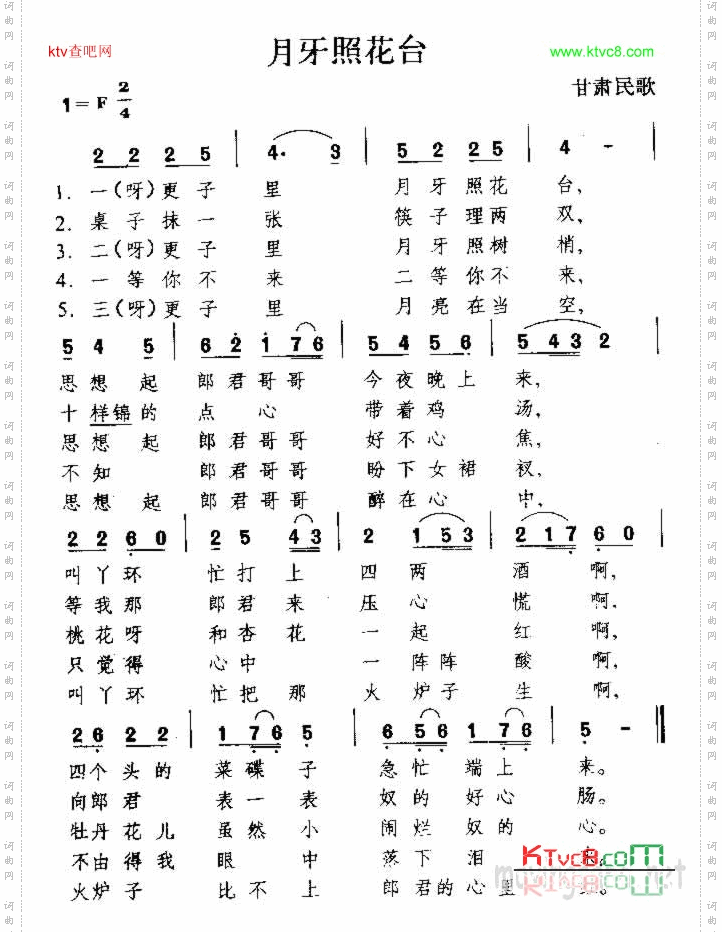 ktv查吧网
月牙照花台
www.ktvc8.com
1=F 2/4
甘肃民歌
2 2 2 5 | 4· 3 | 5 2 2 5 | 4 - |
1. 一(呀)更子里 月牙照花台,
2. 桌子抹一张 筷子理两双,
3. 二(呀)更子里 月牙照树梢,
4. 一等你不来 二等你不来,
5. 三(呀)更子里 月亮在当空,
5 4 5 | 6 2 1 7 6 | 5 4 5 6 | 5 4 3 2 |
思想起 郎君哥哥 今夜晚上来,
十样锦的点心 带着鸡汤,
思想起 郎君哥哥 好不心焦,
不知 郎君哥哥 盼下女裙衩,
思想起 郎君哥哥 醉在心中,
2 2 6 0 | 2 5 4 3 | 2 1 5 3 | 2 1 7 6 0 |
叫丫环 忙打上 四两酒啊,
等我那 郎君来 压心慌啊,
桃花呀 和杏花 一起红啊,
只觉得 心中 一阵阵酸啊,
叫丫环 忙把那 火炉子生啊,
2 6 2 2 | 1 7 6 5 | 6 5 6 1 7 6 | 5 - ‖
四个头的菜碟子 急忙端上来。
向郎君 表一表 奴的好心肠。
牡丹花儿虽然小 闹烂奴的心。
不由得我 眼中 落下泪
火炉子 比不上 郎君的心里
KTvc8.com
词曲网
词曲网